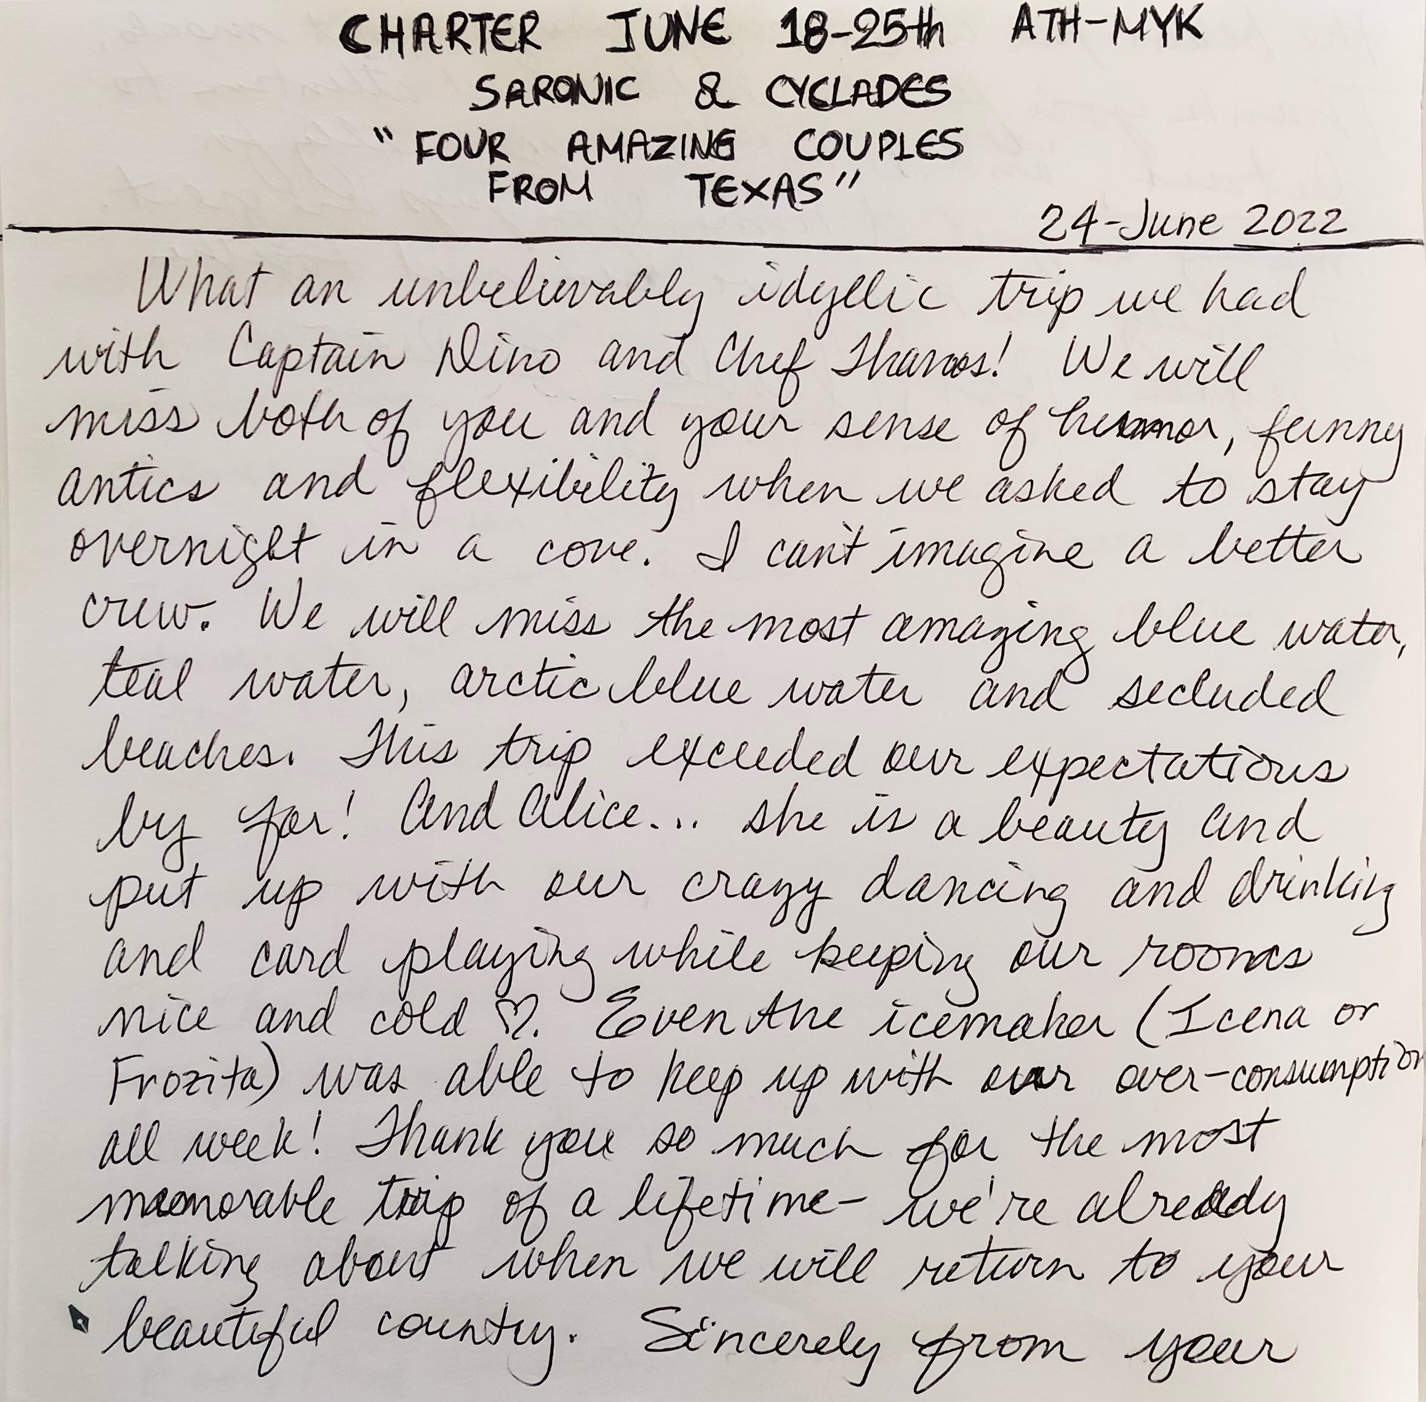 CHARTER JUNE 18-25th ATH-MYK
SARONIC & CYCLADES
"FOUR AMAZING COUPLES
FROM TEXAS"
24-June 2022
What an unbelievably idyllic trip we had
with Captain Dino and Chef Thanos! We will
miss both of you and your sense of humor, funny
antics and flexibility when we asked to stay
overnight in a cove. I can't imagine a better
crew. We will miss the most amazing blue water,
teal water, arctic blue water and secluded
beaches. This trip exceeded our expectations
by far! And Alice... she is a beauty and
put up with our crazy dancing and drinking
and card playing while keeping our rooms
nice and cold ♡. Even the icemaker (Icena or
Frozita) was able to keep up with our over-consumption
all week! Thank you so much for the most
memorable trip of a lifetime- we're already
talking about when we will return to your
beautiful country. Sincerely from your